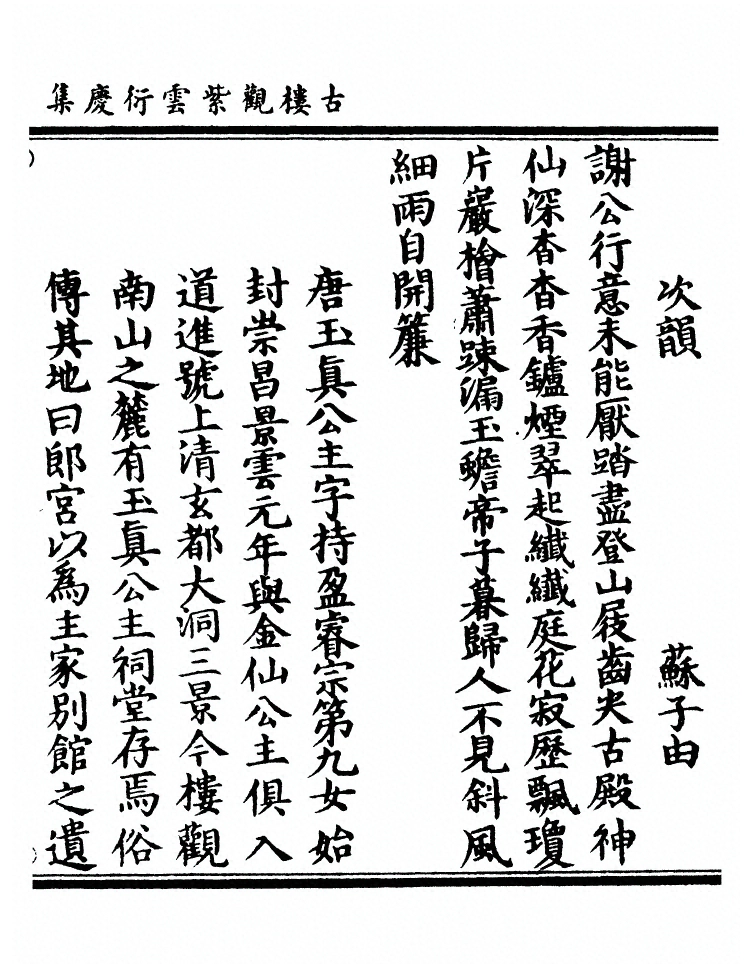 古樓觀紫雲衍慶集
次韻　蘇子由
謝公行意未能厭踏盡登山屐齒尖古殿神
仙深杳杳香鑪煙翠起纖纖庭花寂歷飄瓊
片巖檜蕭踈漏玉蟾帝子暮歸人不見斜風
細雨自開簾
唐玉眞公主字持盈睿宗第九女始
封崇昌景雲元年與金仙公主俱入
道進號上清玄都大洞三景今樓觀
南山之麓有玉眞公主祠堂存焉俗
傳其地曰郎宮以爲主家別館之遺